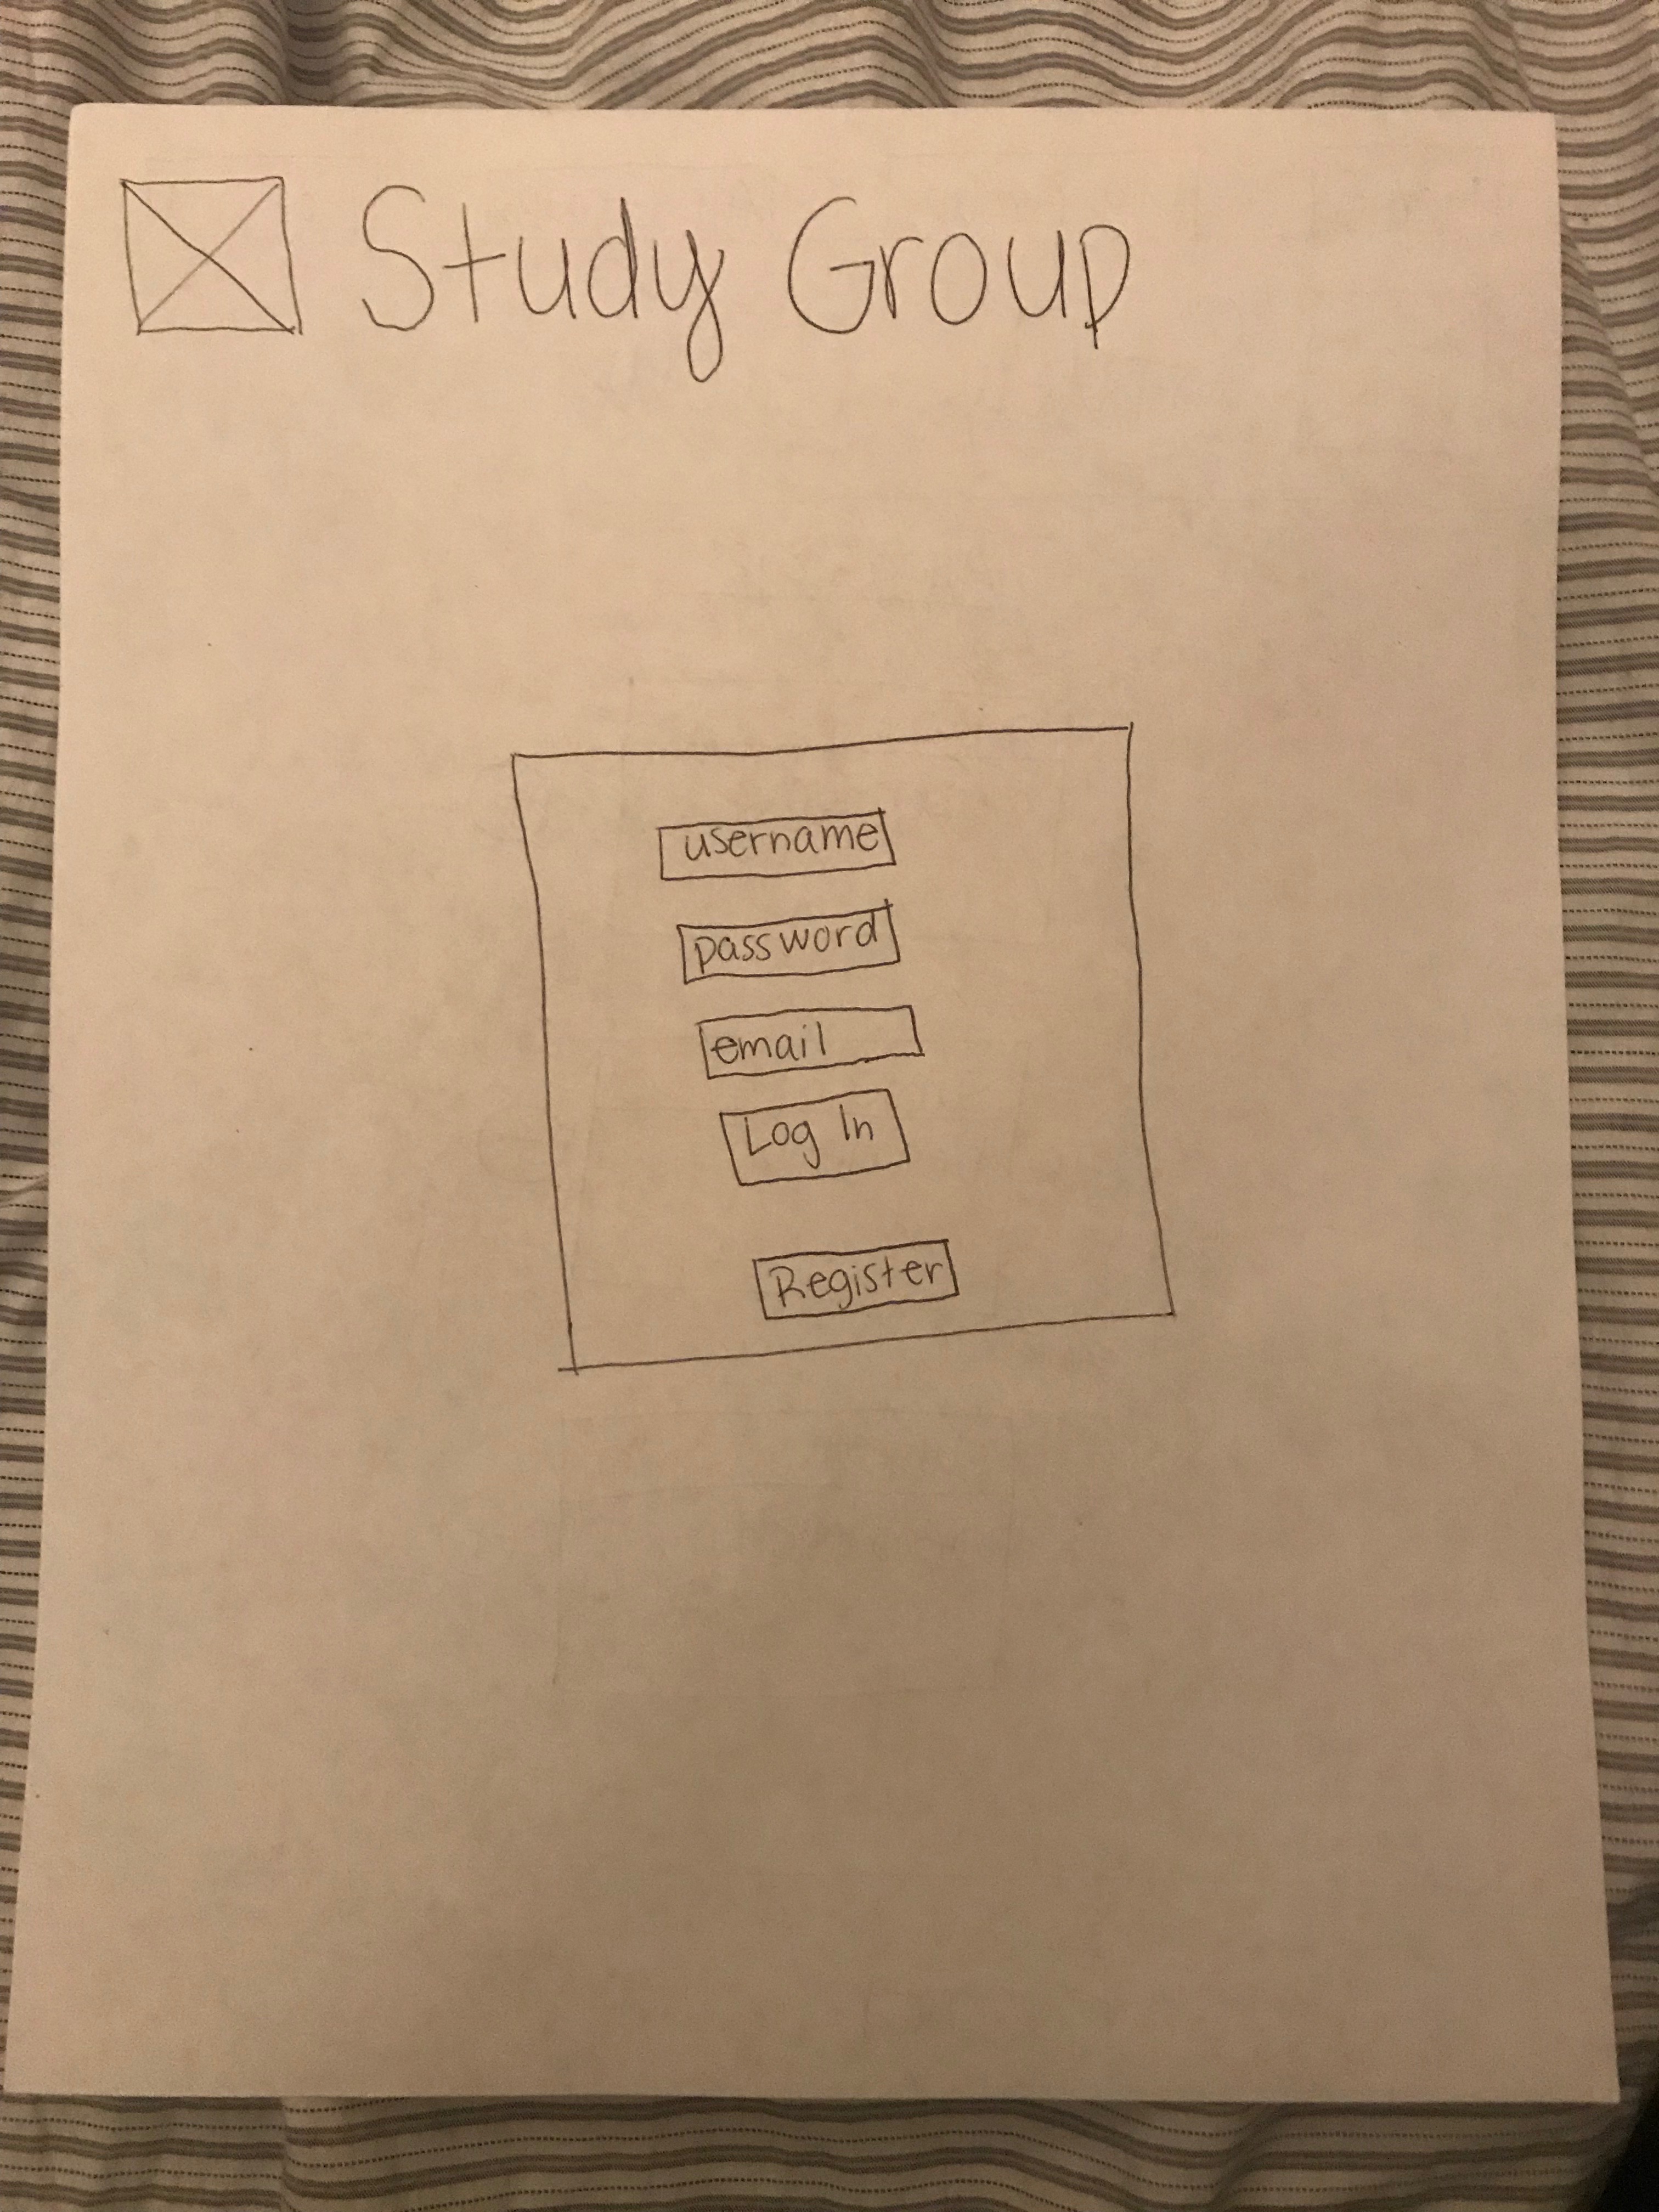 Study Group
username
password
email
Log In
Register